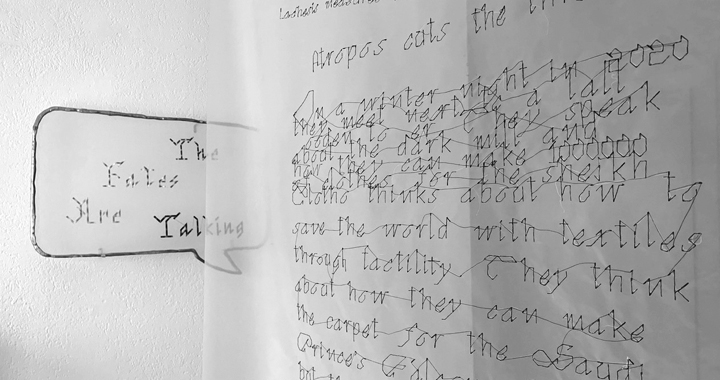 The
Fates
Are
Talking
Lachesis measures
Atropos cuts the
On a winter night in 2020
they meet next to a tall
They speak
about the dark mill and
how they can make 1000000
clothes for the sheikh
Clotho thinks about how to
save the world with textiles
through tactility They think
about how they can make
the carpet for the Saudi
Prince's